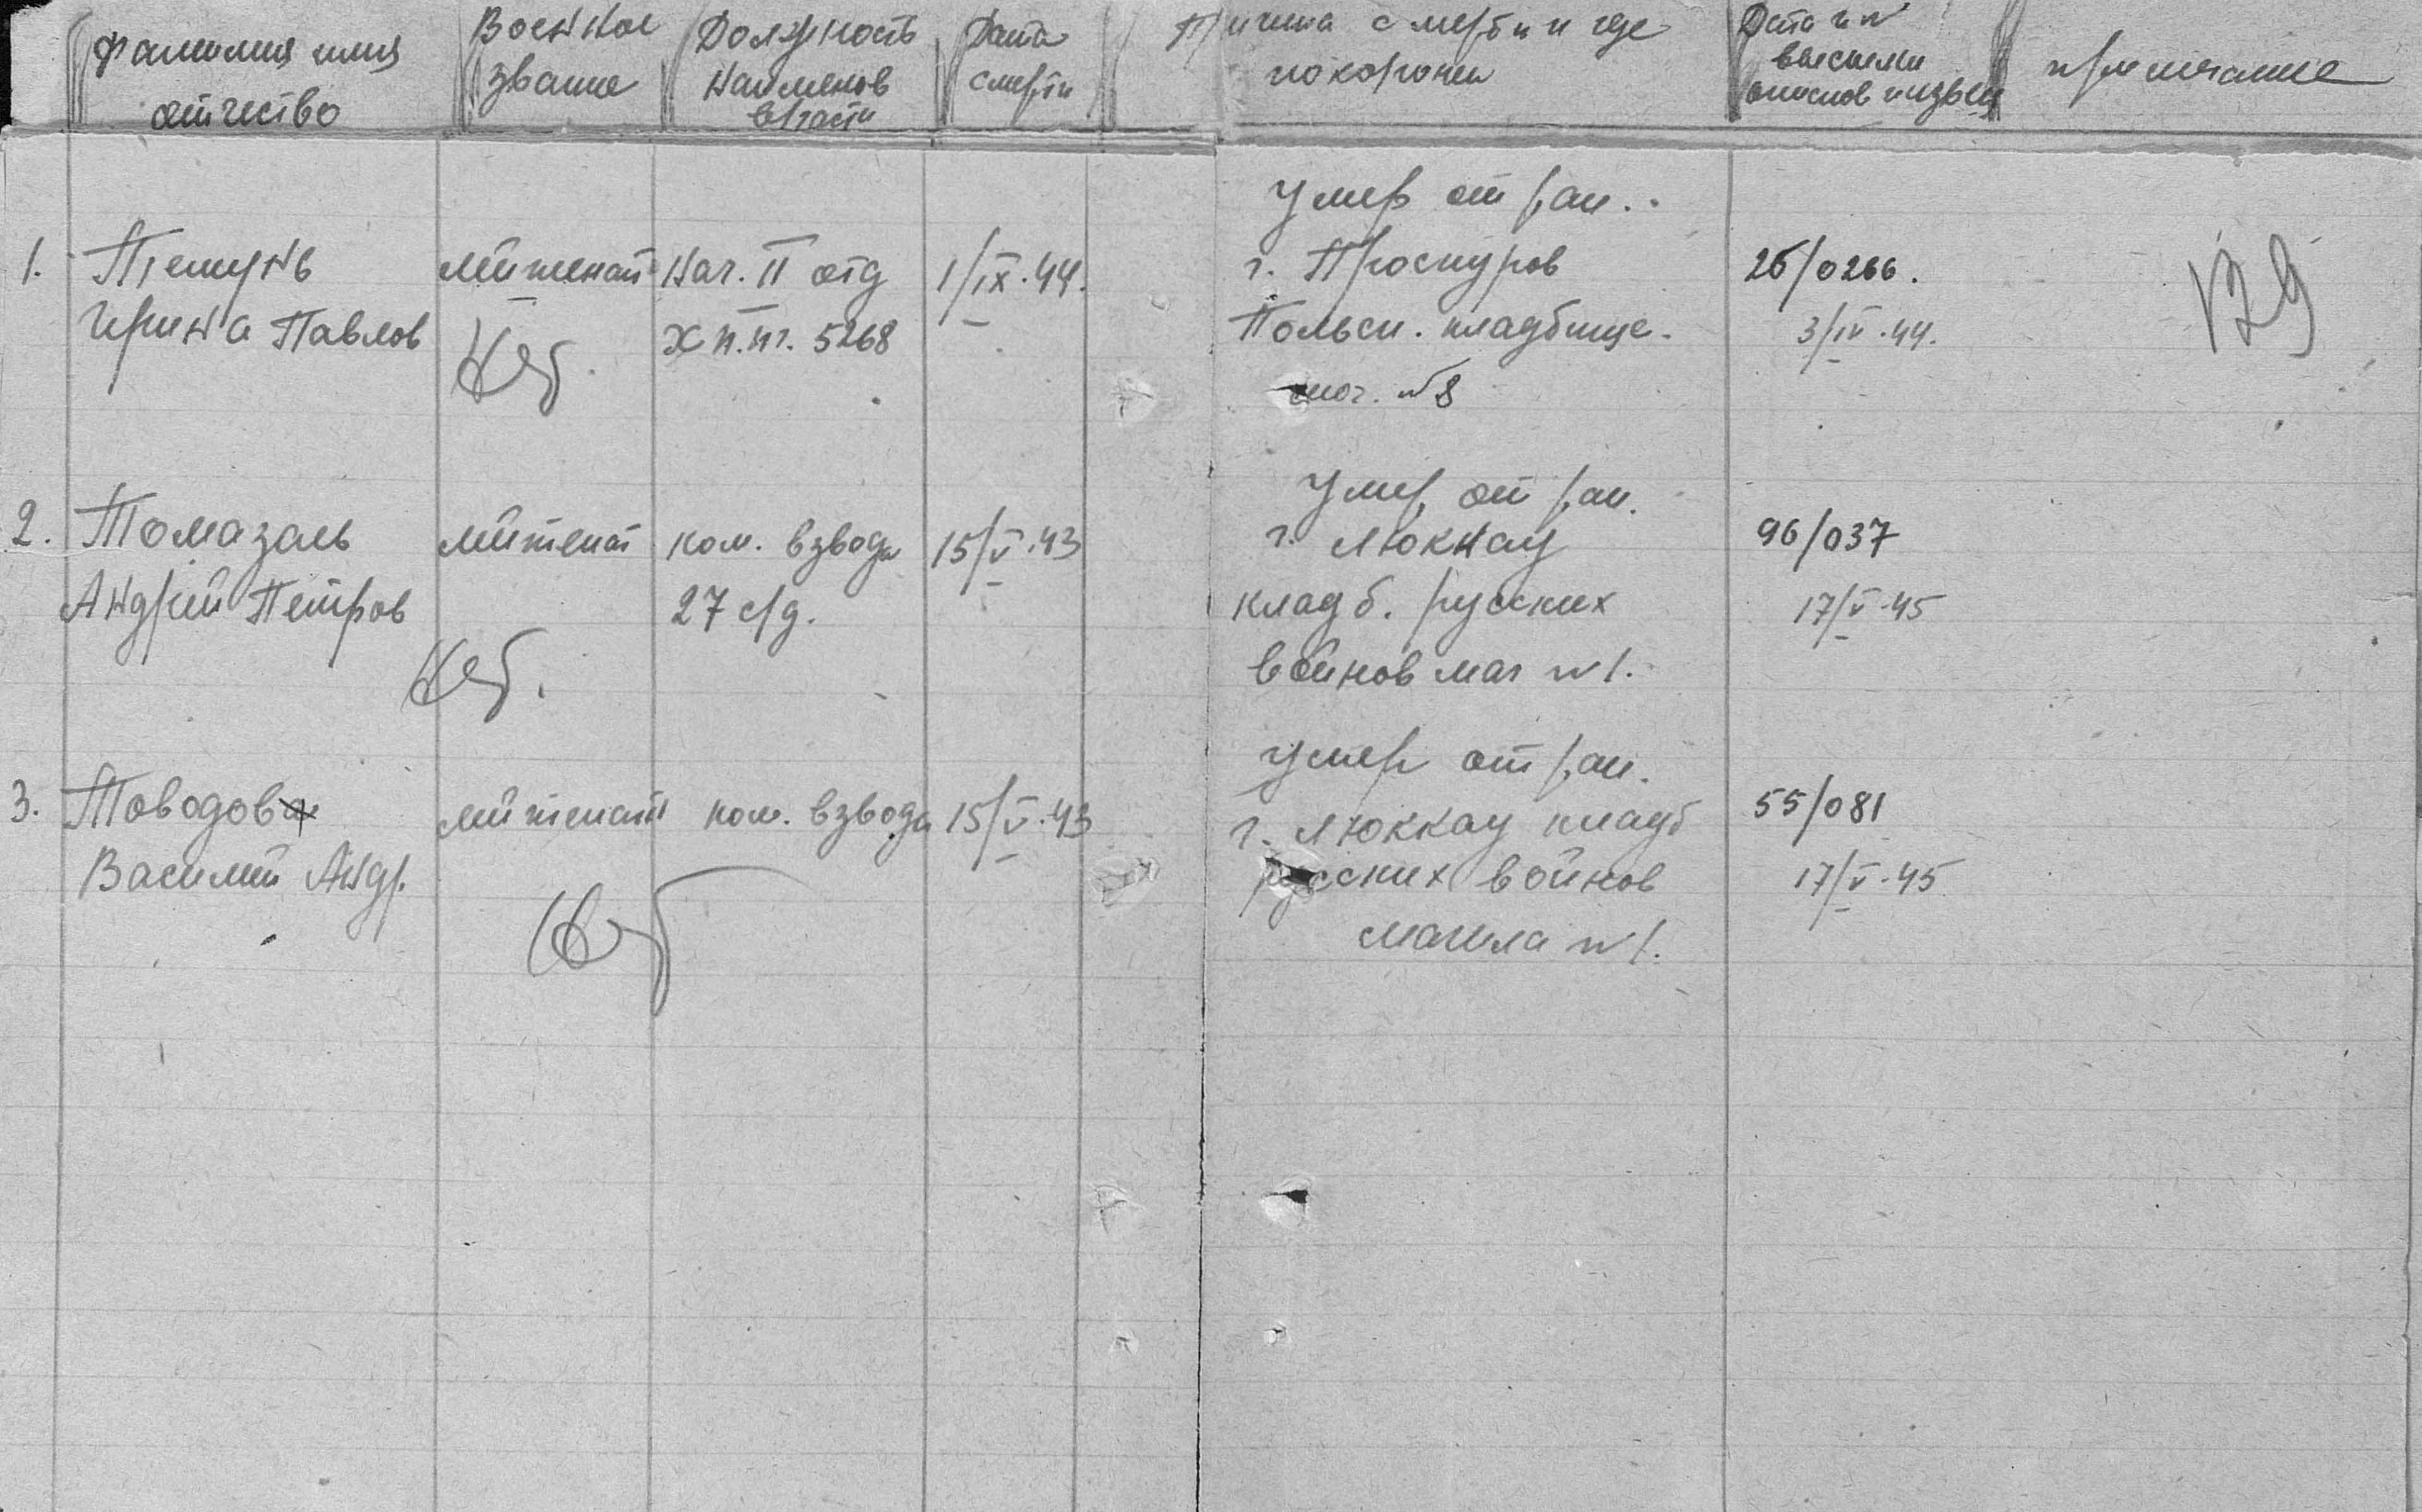 Фамилия имя
отчество
Военное
звание
Должность
наименов
в/части
Дата
смерти
Причина смерти и где
похоронен
Дата и №
высылки
списков и извещ
примечание
1.
Ирина Павлов
лейтенант
Нач. II отд
Х п.пг. 5268
1/IX.44.
умер от ран.
г. Проскуров
Польск. кладбище.
мог. №8
26/0266.
3/IV.44.
139
2. Томазаль
Андрей Петров
лейтенат
ком. взвода
27 с/д.
15/V.43
Умер от ран.
г. Люккау
кладб. русских
войнов мог №1.
96/037
17/V.45
3. Товодов
Василий Андр.
лейтенант
ком. взвода
15/V.43
умер от ран.
г. Люккау кладб
русских войнов
могила №1.
55/081
17/V.45